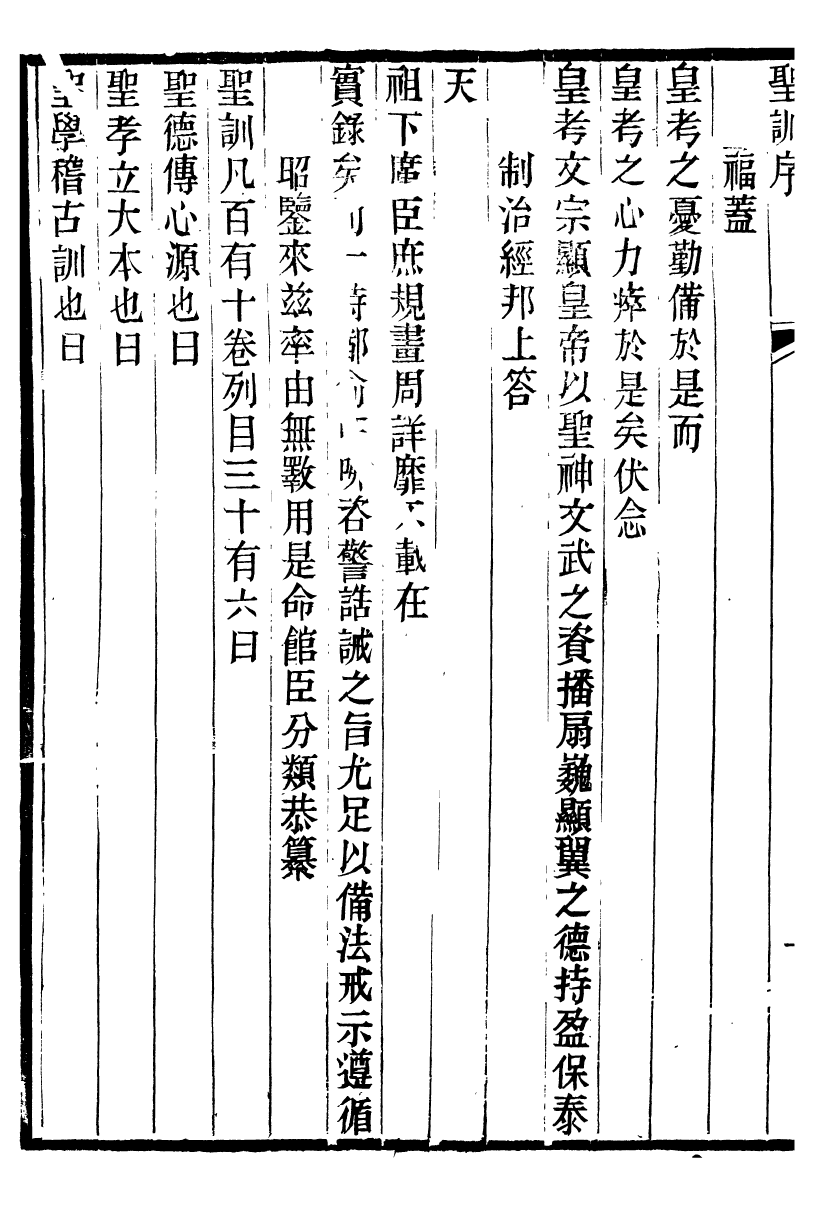 聖訓序
福蓋
皇考之憂勤備於是而
皇考之心力瘁於是矣伏念
皇考文宗顯皇帝以聖神文武之資播扇巍顯翼之德持盈保泰
制治經邦上答
天
祖下廑臣庶規畫周詳靡不載在
實錄矣 一時都俞 咈咨警誥誡之旨尤足以備法戒示遵循
昭鑒來茲率由無斁用是命館臣分類恭纂
聖訓凡百有十卷列目三十有六曰
聖德傳心源也曰
聖孝立大本也曰
聖學稽古訓也曰